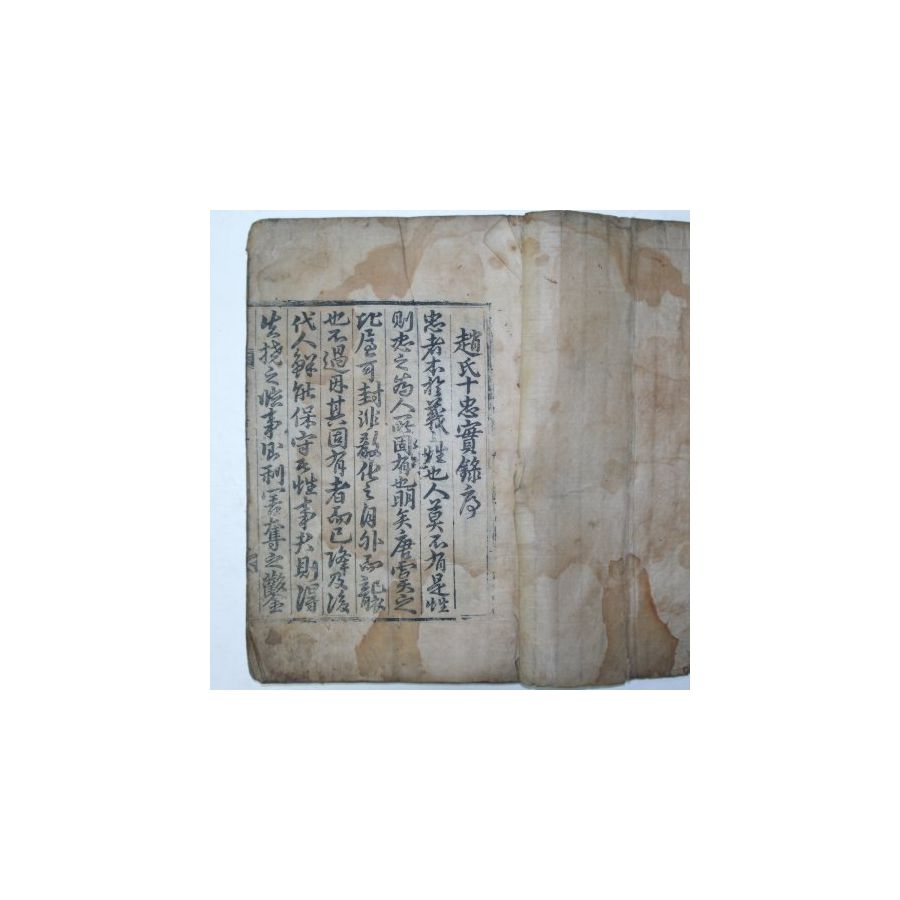 趙氏十忠實錄序
忠者本於義性也人莫不有是性
則忠之爲人所固有也明矣唐虞之
比屋可封非敎化之自外而
也不過因其固有者而已降及後
代人鮮能保守其性事君則得
失撓之臨事則利害奪之